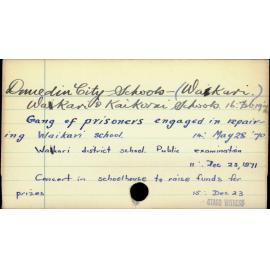 Dunedin City - Schools - (Waikari.)
Waikari & Kaikorai Schools. 16: Feb 19
Gang of prisoners engaged in repair-
ing Waikari school. 14: May 28 '70
Waikari district school Public examination
11: Dec 23, 1871
Concert in schoolhouse to raise funds for
prizes 15: Dec 23
OTAGO WITNESS